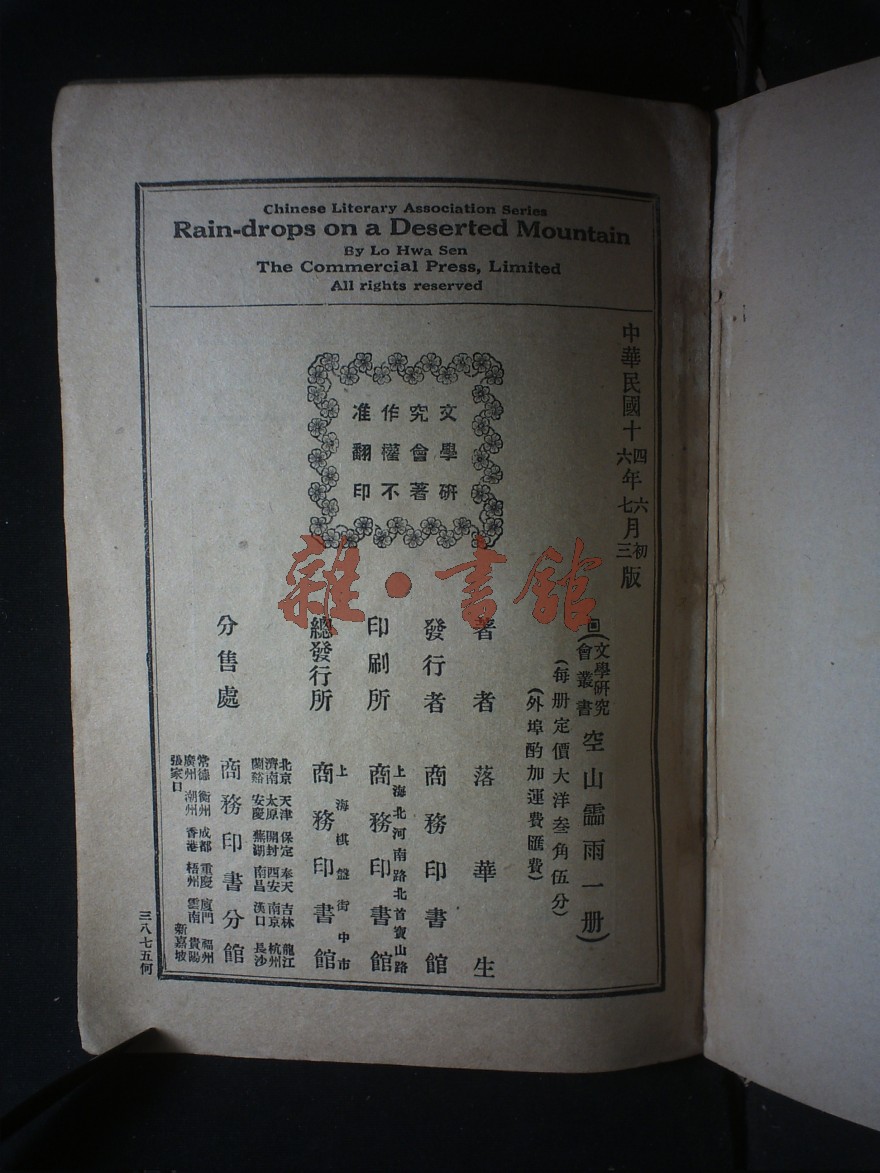 Chinese Literary Association Series
Rain-drops on a Deserted Mountain
By Lo Hwa Sen
The Commercial Press, Limited
All rights reserved
中華民國十四年六月初版
六七三
回(文學研究會叢書空山霝雨一册)
(每册定價大洋叁角伍分)
(外埠酌加運費匯費)
文學研
究會著
作權不
准翻印
著者 落華生
發行者 商務印書館
印刷所 上海北河南路北首寶山路 商務印書館
總發行所 上海棋盤街中市 商務印書館
分售處 商務印書分館
北京 天津 保定 奉天 吉林 龍江
濟南 太原 開封 西安 南京 杭州
蘭谿 安慶 蕪湖 南昌 漢口 長沙
常德 衡州 成都 重慶 廈門 福州
廣州 潮州 香港 梧州 雲南 貴陽
張家口 新嘉坡
三八七五何
雜·書館